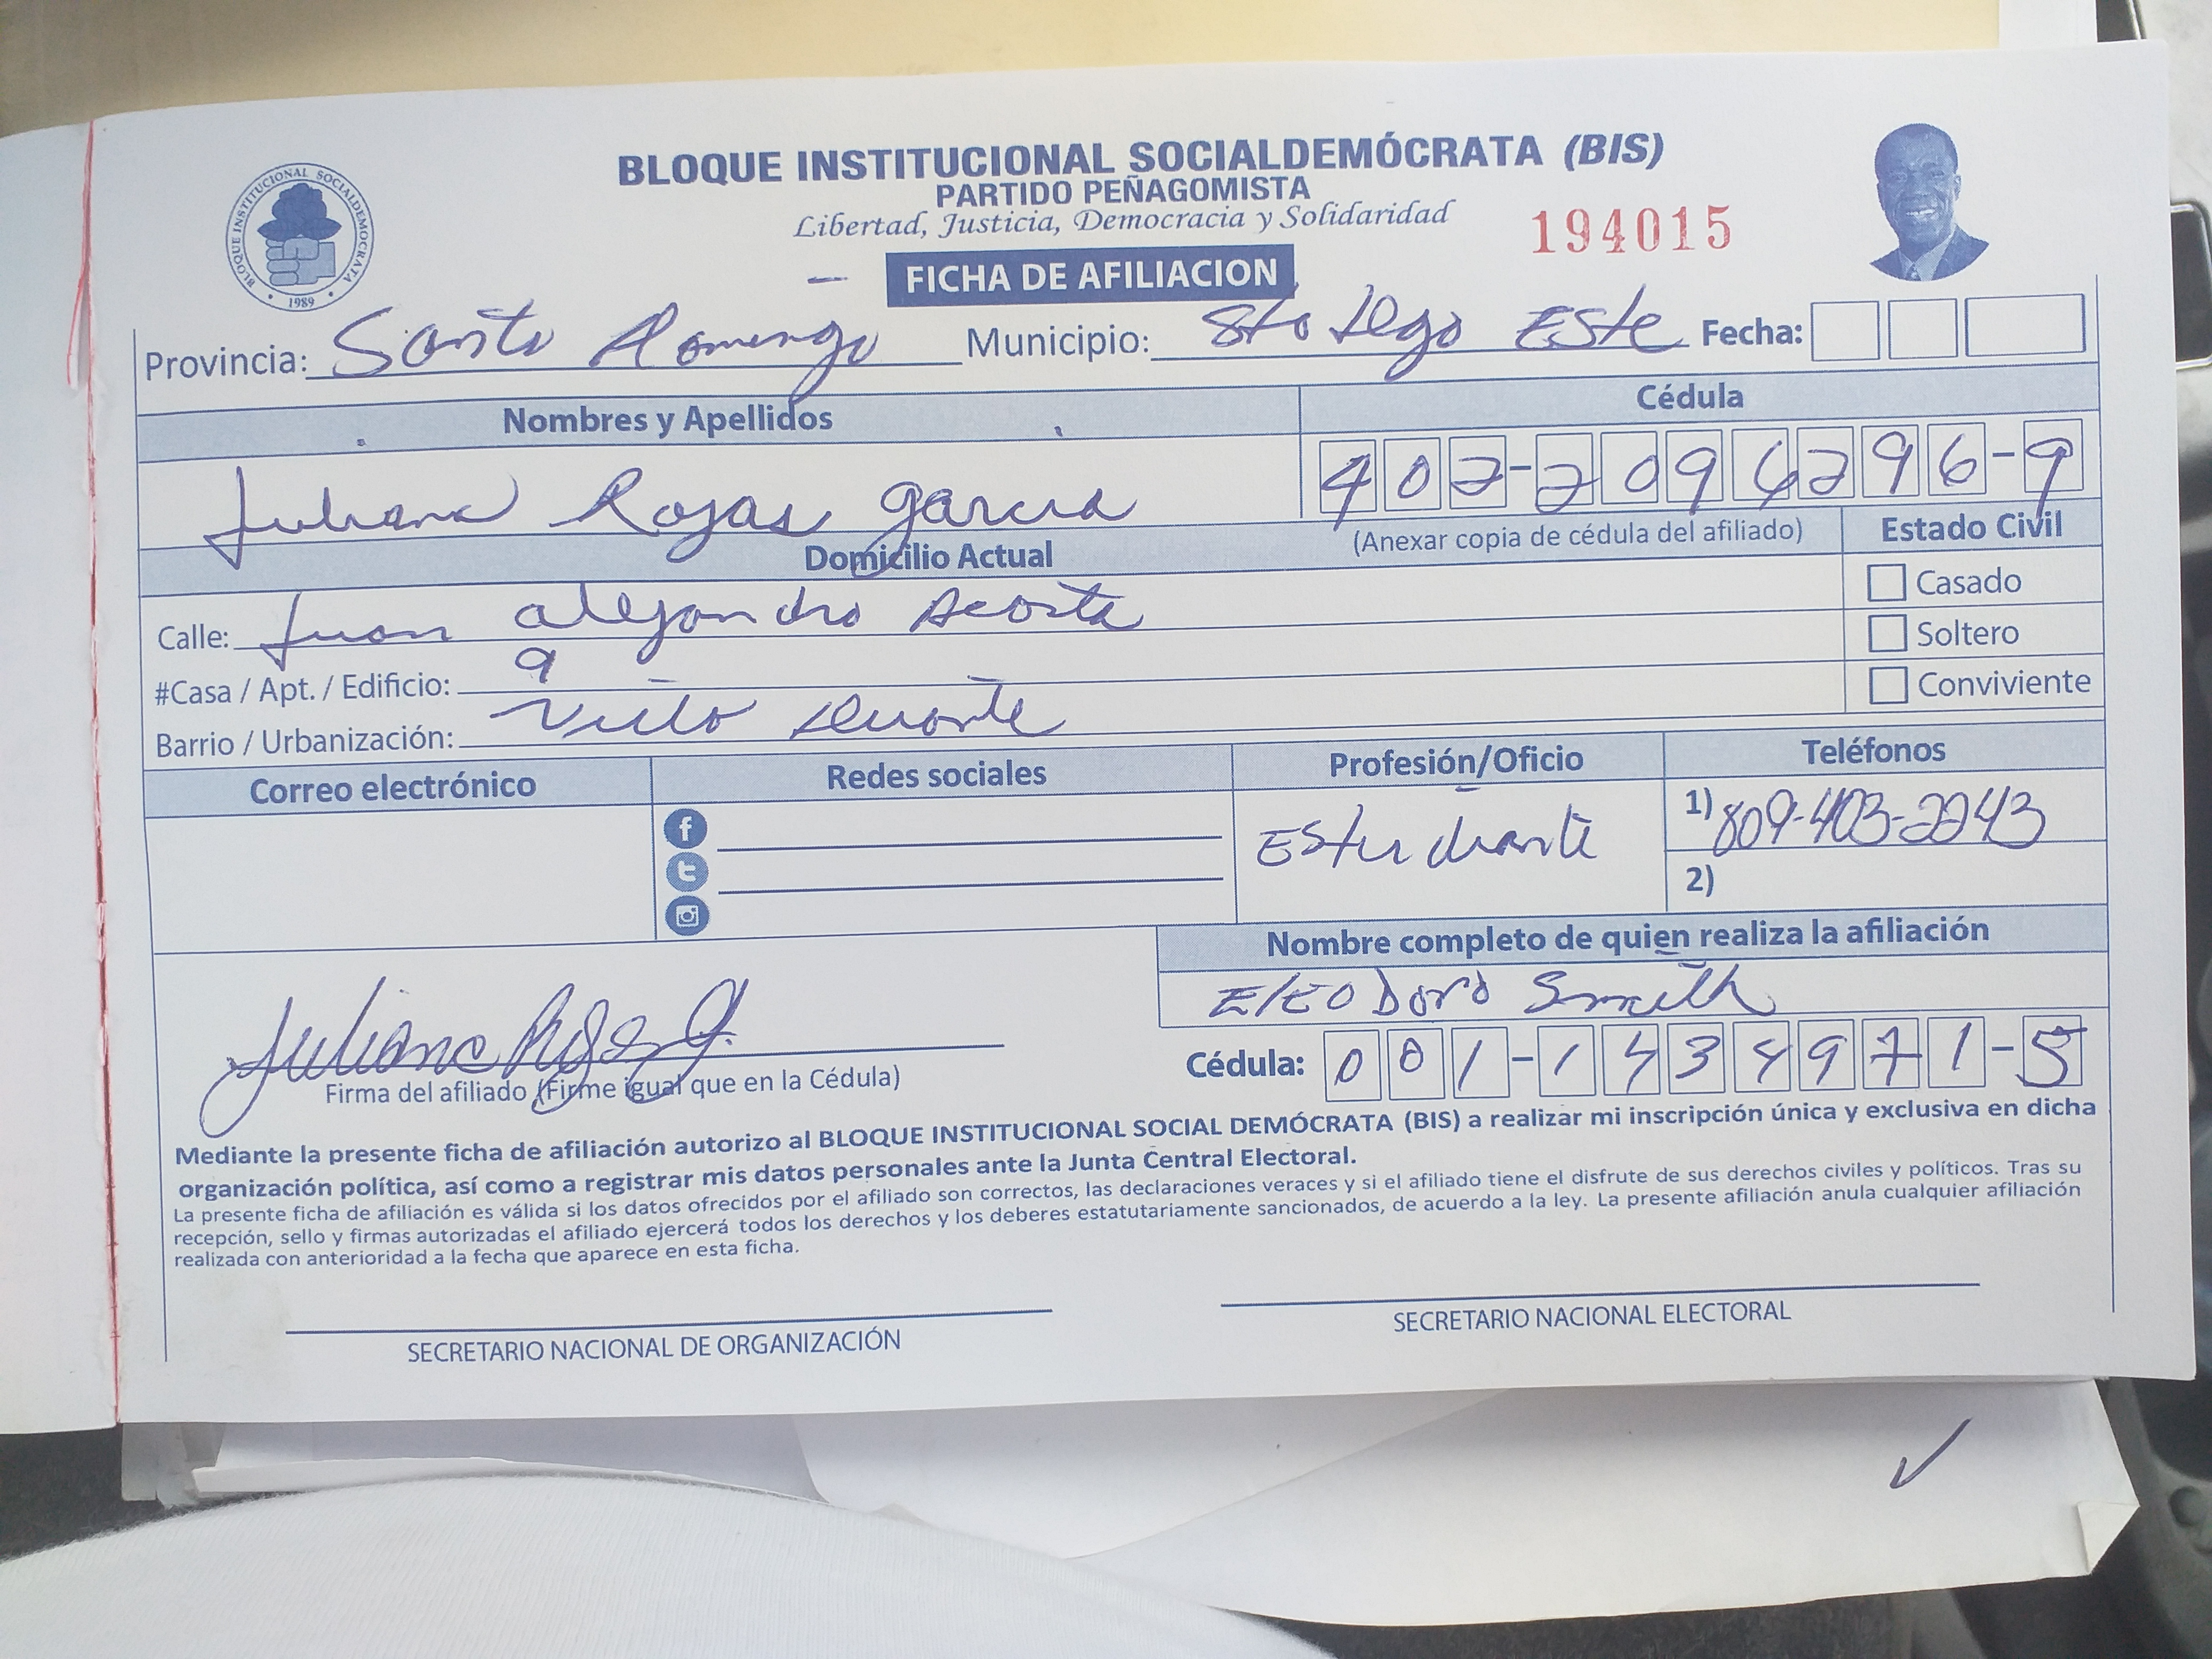 BLOQUE INSTITUCIONAL SOCIALDEMÓCRATA (BIS)
PARTIDO PEÑAGOMISTA
Libertad, Justicia, Democracia y Solidaridad
194015
BLOQUE INSTITUCIONAL SOCIALDEMOCRATA
1989
FICHA DE AFILIACION
Provincia: Santo Domingo Municipio: Sto Dgo Este Fecha:
Nombres y Apellidos Cédula
Juliana Rojas Garcia 402-2096296-9
Domicilio Actual (Anexar copia de cédula del afiliado) Estado Civil
Calle: Juan alejandro Acosta
Casado
Soltero
#Casa / Apt. / Edificio: 9
Conviviente
Barrio / Urbanización: Duarte
Correo electrónico Redes sociales Profesión/Oficio Teléfonos
Estudiante 1) 809-403-2243
2)
Nombre completo de quien realiza la afiliación
EleoDoro Smith
Juliana Rojas G.
Cédula: 001-1434971-5
Firma del afiliado (Firme igual que en la Cédula)
Mediante la presente ficha de afiliación autorizo al BLOQUE INSTITUCIONAL SOCIAL DEMÓCRATA (BIS) a realizar mi inscripción única y exclusiva en dicha
organización política, así como a registrar mis datos personales ante la Junta Central Electoral.
La presente ficha de afiliación es válida si los datos ofrecidos por el afiliado son correctos, las declaraciones veraces y si el afiliado tiene el disfrute de sus derechos civiles y políticos. Tras su
recepción, sello y firmas autorizadas el afiliado ejercerá todos los derechos y los deberes estatutariamente sancionados, de acuerdo a la ley. La presente afiliación anula cualquier afiliación
realizada con anterioridad a la fecha que aparece en esta ficha.
SECRETARIO NACIONAL DE ORGANIZACIÓN SECRETARIO NACIONAL ELECTORAL